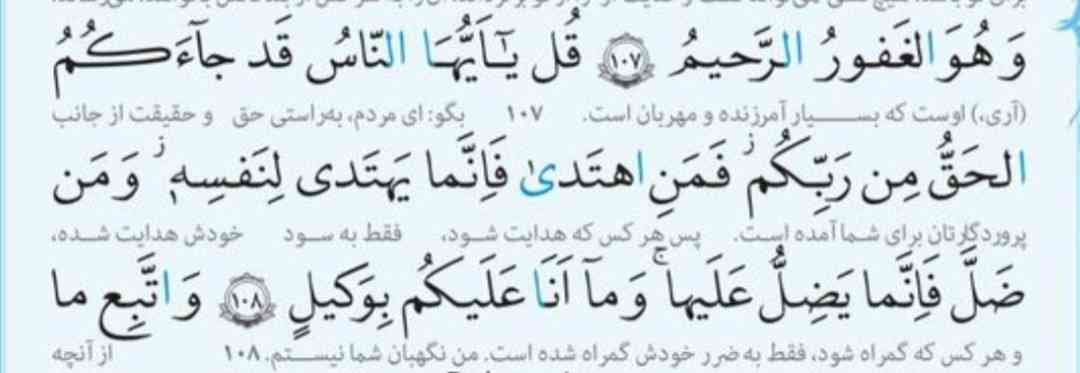 وَ هُوَ الغَفورُ الرَّحيمُ ﴿١٠٧﴾ قُل يٰٓاَيُّهَا النّاسُ قَد جآءَكُمُ
(آری،) اوست که بسـیار آمرزنده و مهربان است. ۱۰۷ بگو: ای مردم، به‌راستی حق و حقیقت از جانب
الحَقُّ مِن رَبِّكُم ۖ فَمَنِ اهتَدىٰ فَاِنَّما يَهتَدى لِنَفسِه ۖ وَ مَن
پروردگارتان برای شما آمده است. پس هر کس که هدایت شـود، فقط به سـود خودش هدایت شـده،
ضَلَّ فَاِنَّما يَضِلُّ عَلَيها ۚ وَ مآ اَنَا عَلَيكُم بِوَكيلٍ ﴿١٠٨﴾ وَ اتَّبِع ما
و هر کس که گمراه شود، فقط به ضرر خودش گمراه شده است. من نگهبان شما نیسـتم. ۱۰۸ از آنچه